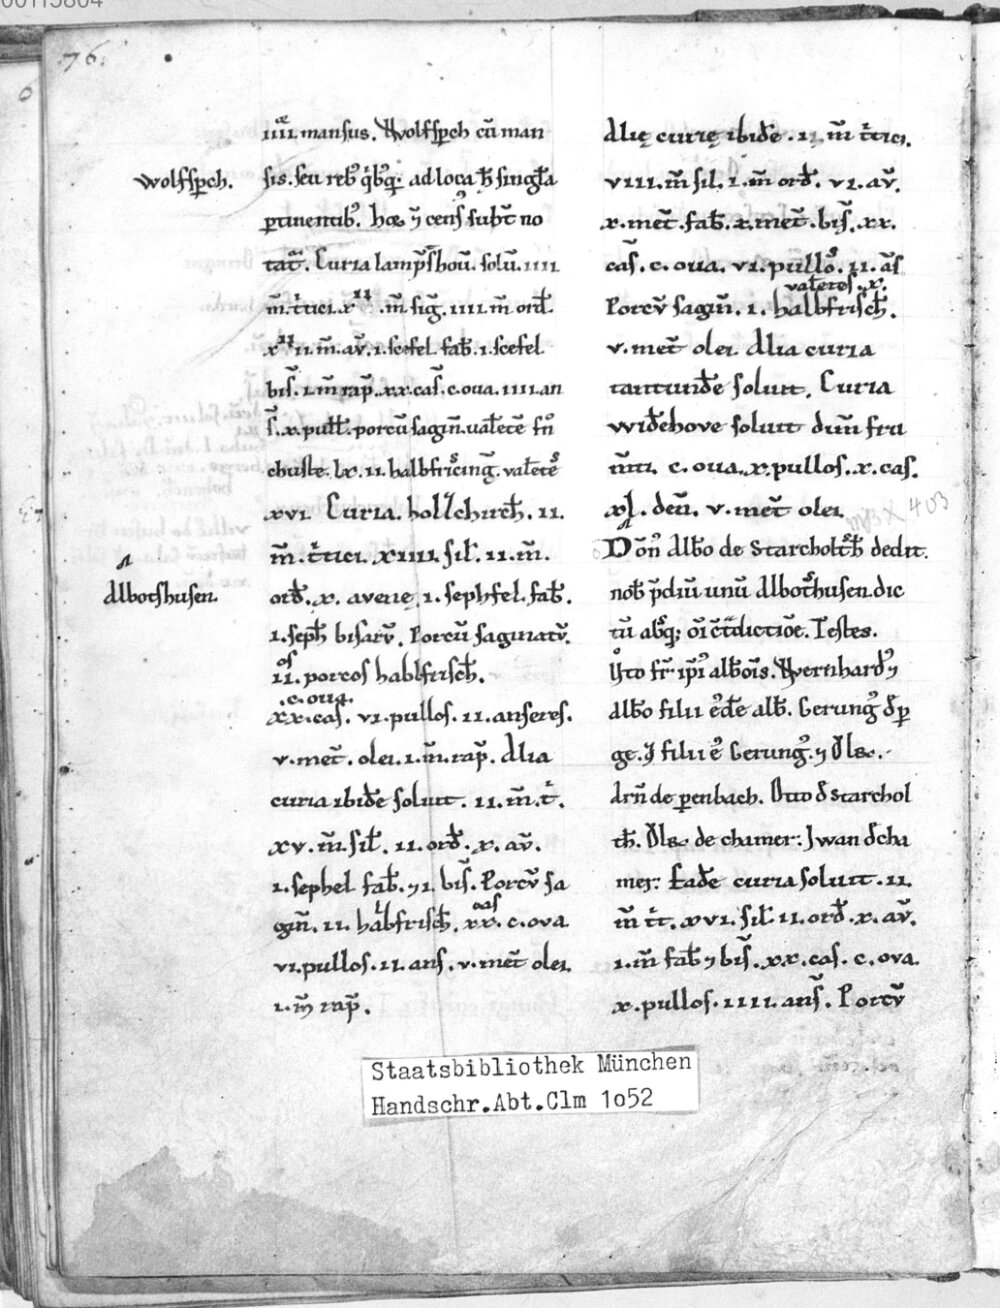 00115804
76.
6
wolfsp̄ch.
Albotshusen.
iiii mansus. Wolfsp̄ch cū man
sis. seu reb⁹ q̇b⁹q; ad loca h̄ singl̄a
ꝑtinentib⁹. hoc ⁊ cens⁹ subt̄ no
tat̄. Curia lamp̄sħou. solū. iiii
m̄. t̄tici. x . m̄ siḡ. iiii m̄ ord̄.
x ii. m̄. av̄. i. scefel. fab̄. i. scefel
bis̄. i. m̄ rap̄. xx. cas̄. c. oua. iiii. an
s̄. x. pull̄. porcū sagin̄. ualēte
lx. ii. halbfricinḡ. valēte
xvi. Curia. hollchurch̄. ii.
m̄. t̄tici. xiiii. sil̄. ii. m̄.
ord̄. x. avene. i. sephfel. fab̄.
i. seph̄ bisarū. Porcū saginatū.
ii. porcos hablfrisch̄.
.c. oua.
xx. cas̄. vi. pullos. ii. anseres.
v. met̄. olei. i. m̄. rap̄. Alia
curia ibidē soluit. ii. m̄. t̄.
xv. m̄. sil̄. ii. ord̄. x. av̄.
i. sephel fab̄. ⁊ i. bis̄. Porcū sa
gin̄. ii. halbfrisch̄. xx. cas c. ova
vi. pullos. ii. ans̄. v. met̄ olei.
i. m̄ rap̄.
Alię curię ibidē. ii. m̄ t̄tici.
viii. m̄ sil̄. i. m̄ ord̄. vi. av̄.
x. met̄. fab̄. x. met̄. bis̄. xx.
cas̄. c. oua. vi. pullos. ii. ās
valētes. x.
Porcū sagin̄. i. halbfrisch̄.
v. met̄ olei Alia curia
tantundē soluit. Curia
widehove soluit dum̄ fru
m̄ti. c. oua. x. pullos. x. cas.
xl. den̄. v. met̄ olei
Dōn Alb̄o de Starcholth̄ dedit.
nob̄ p̄diū unū Albothusen dic
tū absq; ōi c̄tdictiōe. Testes.
Otto fr̄ ip̄i⁹ alb̄ōis. Wernhard⁹ ⁊
alb̄o filii ei⁹dē alb̄. Gerung⁹ d̄ ꝑ
ge. ⁊ filii ei⁹ Gerung⁹. ⁊ Vls.
Arn̄ de ꝑenbach. Otto d̄ starchol
th̄. Vls de chamer: Iwan d̄ cha
mer: Eadē curia soluit. ii.
m̄ t̄t. xvi. sil̄ ii. ord̄. x. av̄.
i. m̄ fab̄ ⁊ bis̄. xx. cas. c. ova.
x. pullos. iiii. ans̄. Porcū
403
Staatsbibliothek München
Handschr.Abt.Clm 1o52